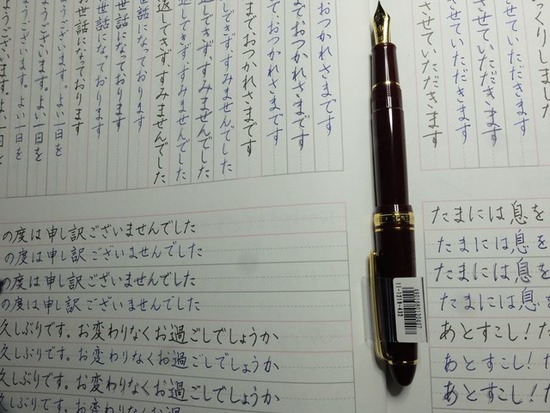 くりしました
させていただきます
させていただきます
させていただきます
させていただきます
おつかれさまです
で、おつかれさまです
まで、おつかれさまです
まで、おつかれさまです
してきず、すみませんでした
してきず、すみませんでした
してきず、すみませんでした
返してきず、すみませんでした
世話になっております
世話になっております
世話になっております
世話になっております
ようございます。よい一日を
ようございます。よい一日を
ようございます。よい一日を
の度は申し訳ございませんでした
の度は申し訳ございませんでした
の度は申し訳ございませんでした
の度は申し訳ございませんでした
久しぶりです。お変わりなくお過ごしでしょうか
久しぶりです。お変わりなくお過ごしでしょうか
久しぶりです。お変わりなくお過ごしでしょうか
たまには息を
たまには息を
たまには息を
たまには息を
あとすこし!た
あとすこし!た
あとすこし!た
11-0219-432